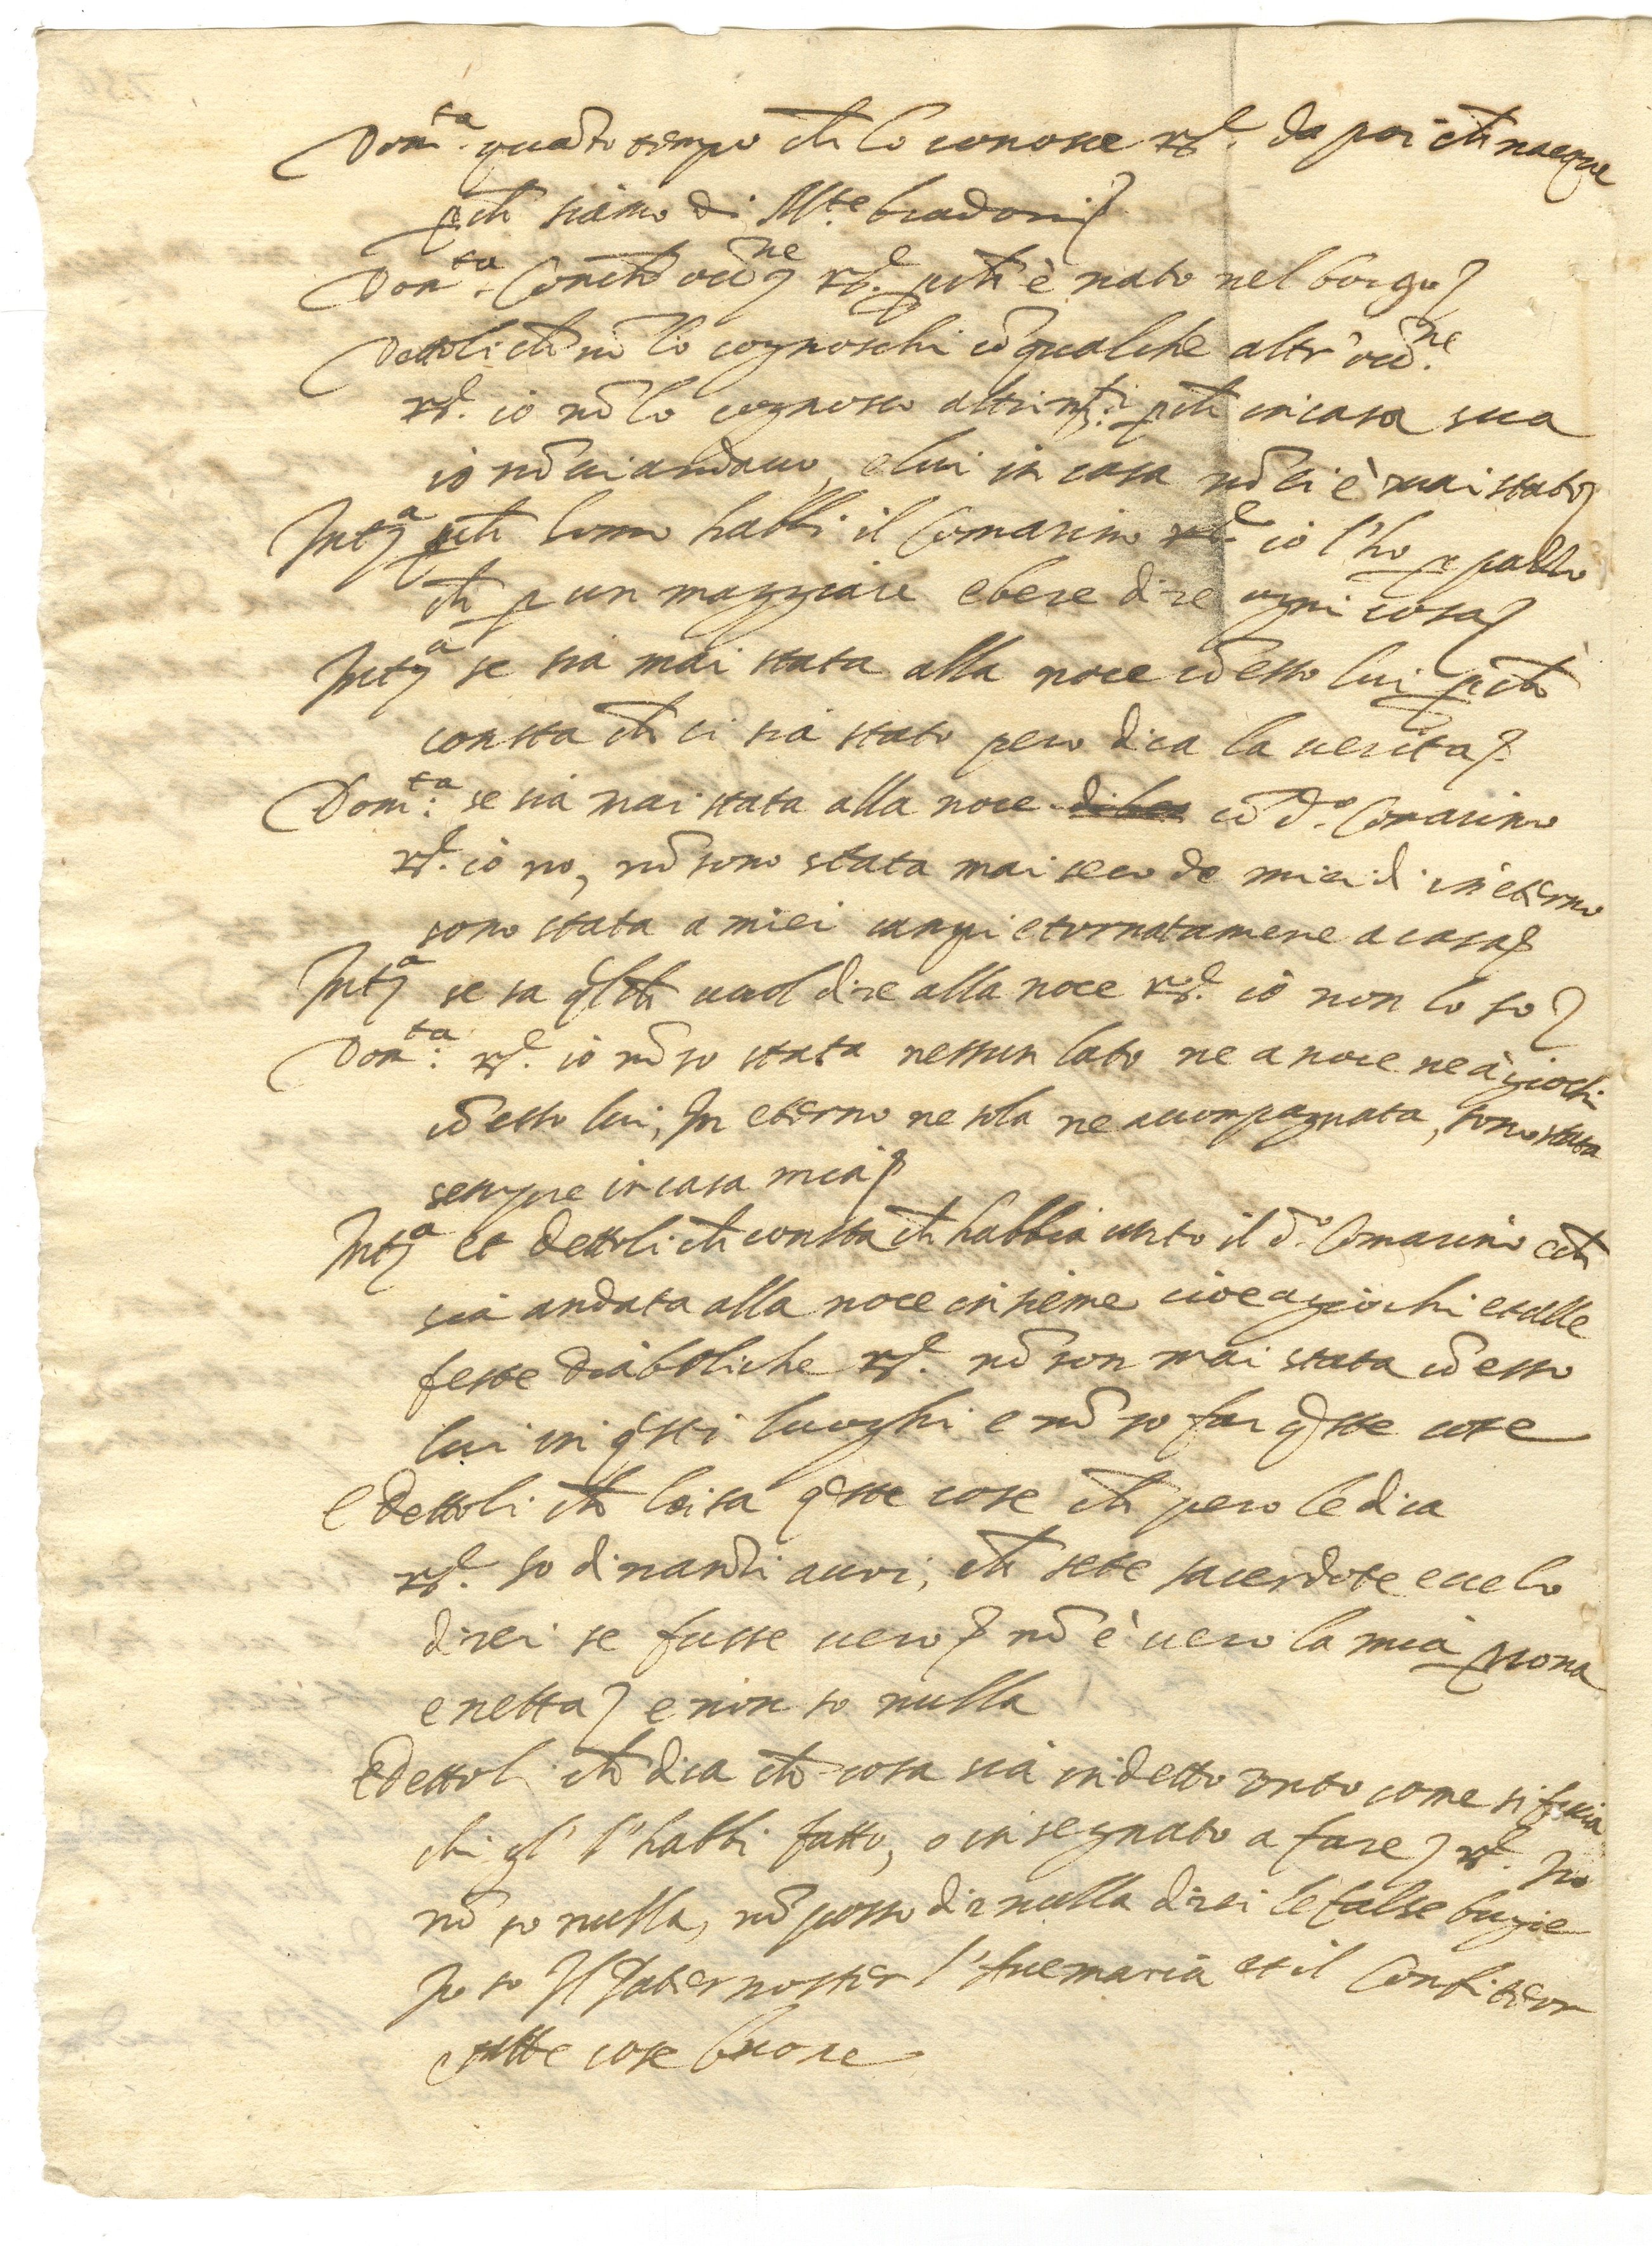 Dom.ta quãto tempo ch̃ lo conosce rx.e da poi ch̃ nacque
pch̃ siamo di M.te bradoni
Dom.ta con ch̃ occ.ne rx.e pch̃ è nato nel borgo
Dettoli ch̃ nõ lo cognoschi cõ qualche altr' occ.ne
rx.e io nõ lo cognosco altrim.ti pch̃ in casa sua
io nõ ci andavo, e lui in casa nõ ci è mai stato
Int.a pch̃ homo habbi il Comarino rx.e io l'ho p pallo
ch̃ p un mazziare e bere dire ogni cosa
Int.a se sia mai stata alla noce cõ esso lui pch̃
consta ch̃ ci sia stato pero dica la uerita
Dom.ta se sia mai stata alla noce cõ d.o Comarino
rx.e io no, nõ sono stata mai seco de miei dì in eterno
sono stata a miei campi e tornatamene a casa
Int.a se sa q̃l ch̃ uuol dire alla noce rx.e io non lo so
Dom.ta rx.e io nõ so stata nessun lato ne a noce ne à giochi
cõ esso lui, In eterno ne sola ne accompagnata, sono stata
sempre in casa mia
Int.a et dettoli ch̃ consta ch̃ habbia unto il d.o Comarino e ch̃
sia andata alla noce insieme cioe a giochi et alle
feste diaboliche rx.e nõ son mai stata cõ esso
lui in q̃sti luoghi e nõ so far q̃ste cose
e dettoli ch̃ lei sa q̃ste cose ch̃ pero le dica
rx.e so dinanzi a uoi, ch̃ sete sacerdote e ue lo
direi se fusse uero nõ è uero la mia psona
e netta e non so nulla
e dettoli ch̃ dica ch̃ cosa sia in detto onto come si faccia
chi gl' l'habbi fatto, o insegnato a fare rx.e Io
nõ so nulla, nõ posso dir nulla direi le false bugie
Io so Il Pater noster l'Auemaria et il Confiteor
e tutte cose buone